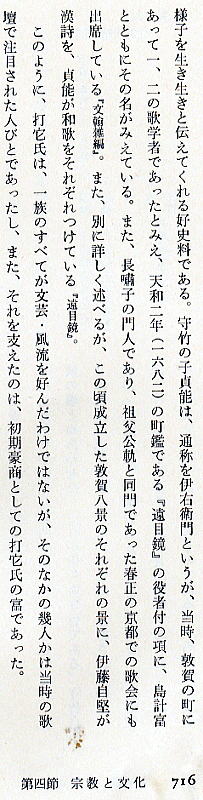 様子を生き生きと伝えてくれる好史料である。守竹の子貞能は、通称を伊右衛門というが、当時、敦賀の町に
あって一、二の歌学者であったとみえ、天和二年（一六八二）の町鑑である『遠目鏡』の役者付の項に、島計富
とともにその名がみえている。また、長嘯子の門人であり、祖父公軌と同門であった春正の京都での歌会にも
出席している『文翰雑編』。また、別に詳しく述べるが、この頃成立した敦賀八景のそれぞれの景に、伊藤自堅が
漢詩を、貞能が和歌をそれぞれつけている『遠目鏡』。
このように、打它氏は、一族のすべてが文芸・風流を好んだわけではないが、そのなかの幾人かは当時の歌
壇で注目された人びとであったし、また、それを支えたのは、初期豪商としての打它氏の富であった。
第四節　宗教と文化　716